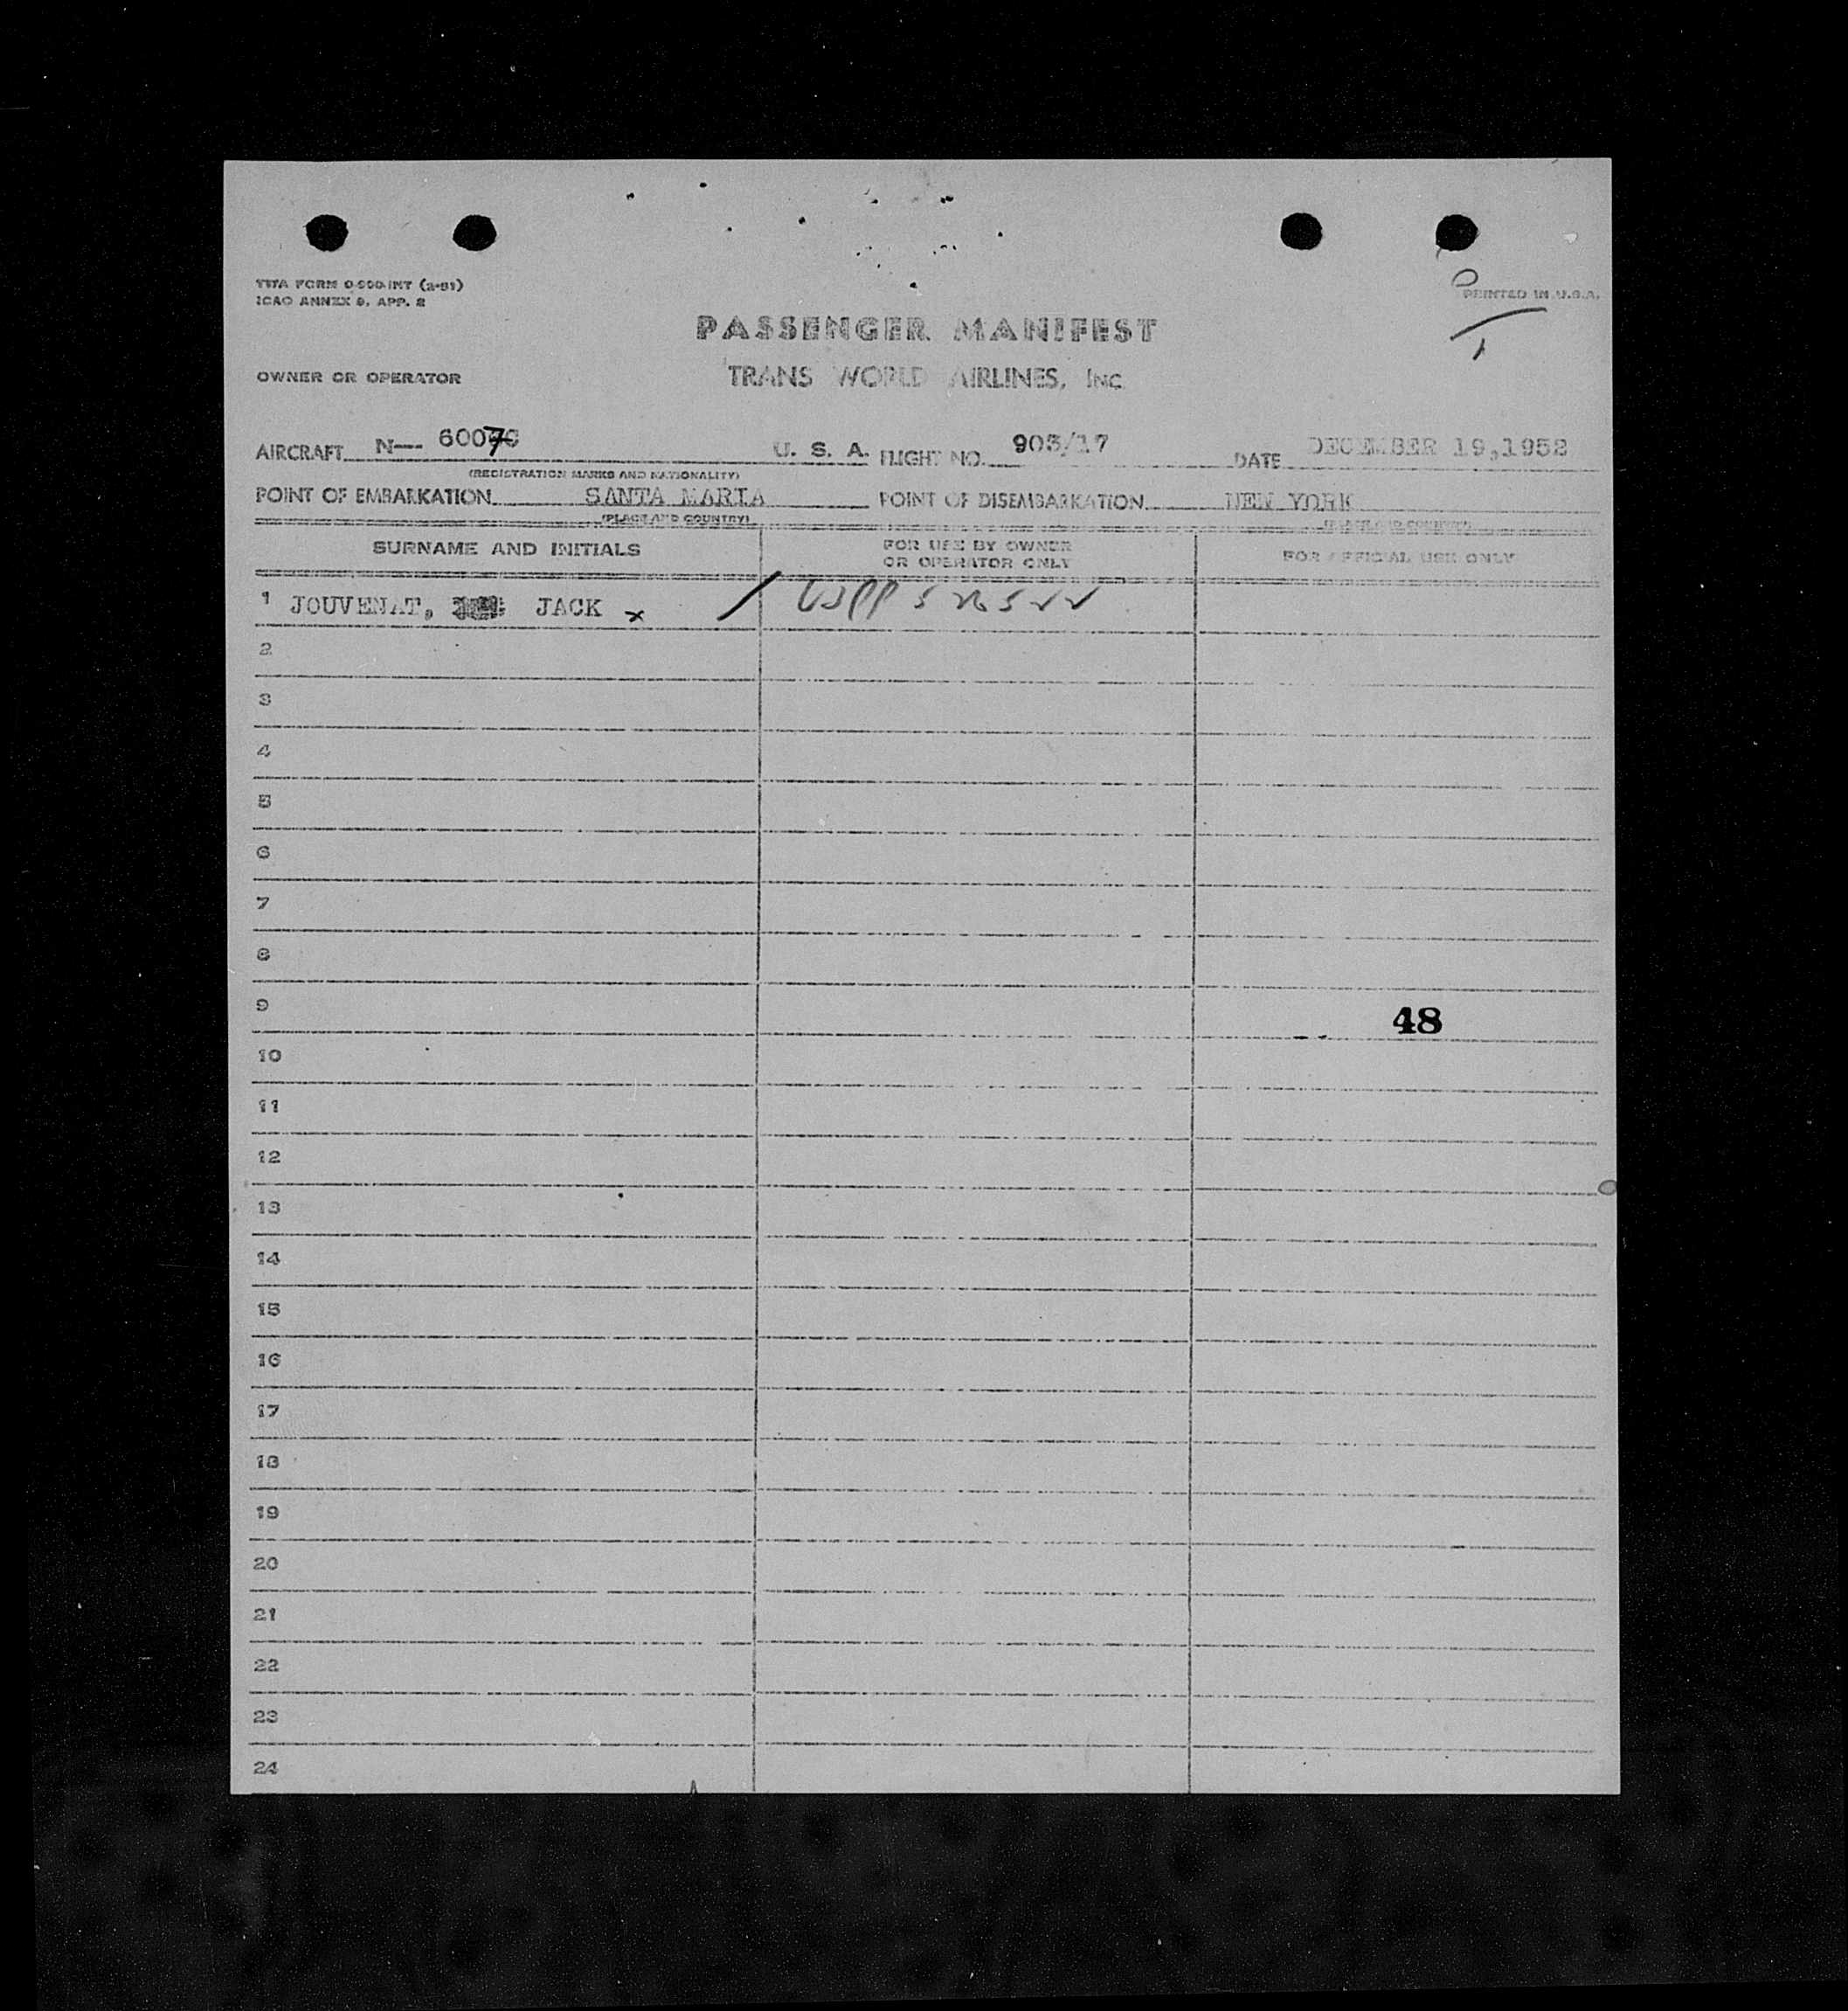 TWA FORM 0-900-INT (2-51)
ICAO ANNEX 9, APP. 2
PRINTED IN U.S.A.
PASSENGER MANIFEST
OWNER OR OPERATOR
TRANS WORLD AIRLINES, INC.
AIRCRAFT N— U. S. A. FLIGHT NO. 903/17 DATE DECEMBER 19,1952
(REGISTRATION MARKS AND NATIONALITY)
POINT OF EMBARKATION SANTA MARIA POINT OF DISEMBARKATION NEW YORK
(PLACE AND COUNTRY) (PLACE AND COUNTRY)
SURNAME AND INITIALS
FOR USE BY OWNER
OR OPERATOR ONLY
FOR OFFICIAL USE ONLY
1 JOUVENAT, JACK x
2
3
4
5
6
7
8
9
48
10
11
12
13
14
15
16
17
18
19
20
21
22
23
24